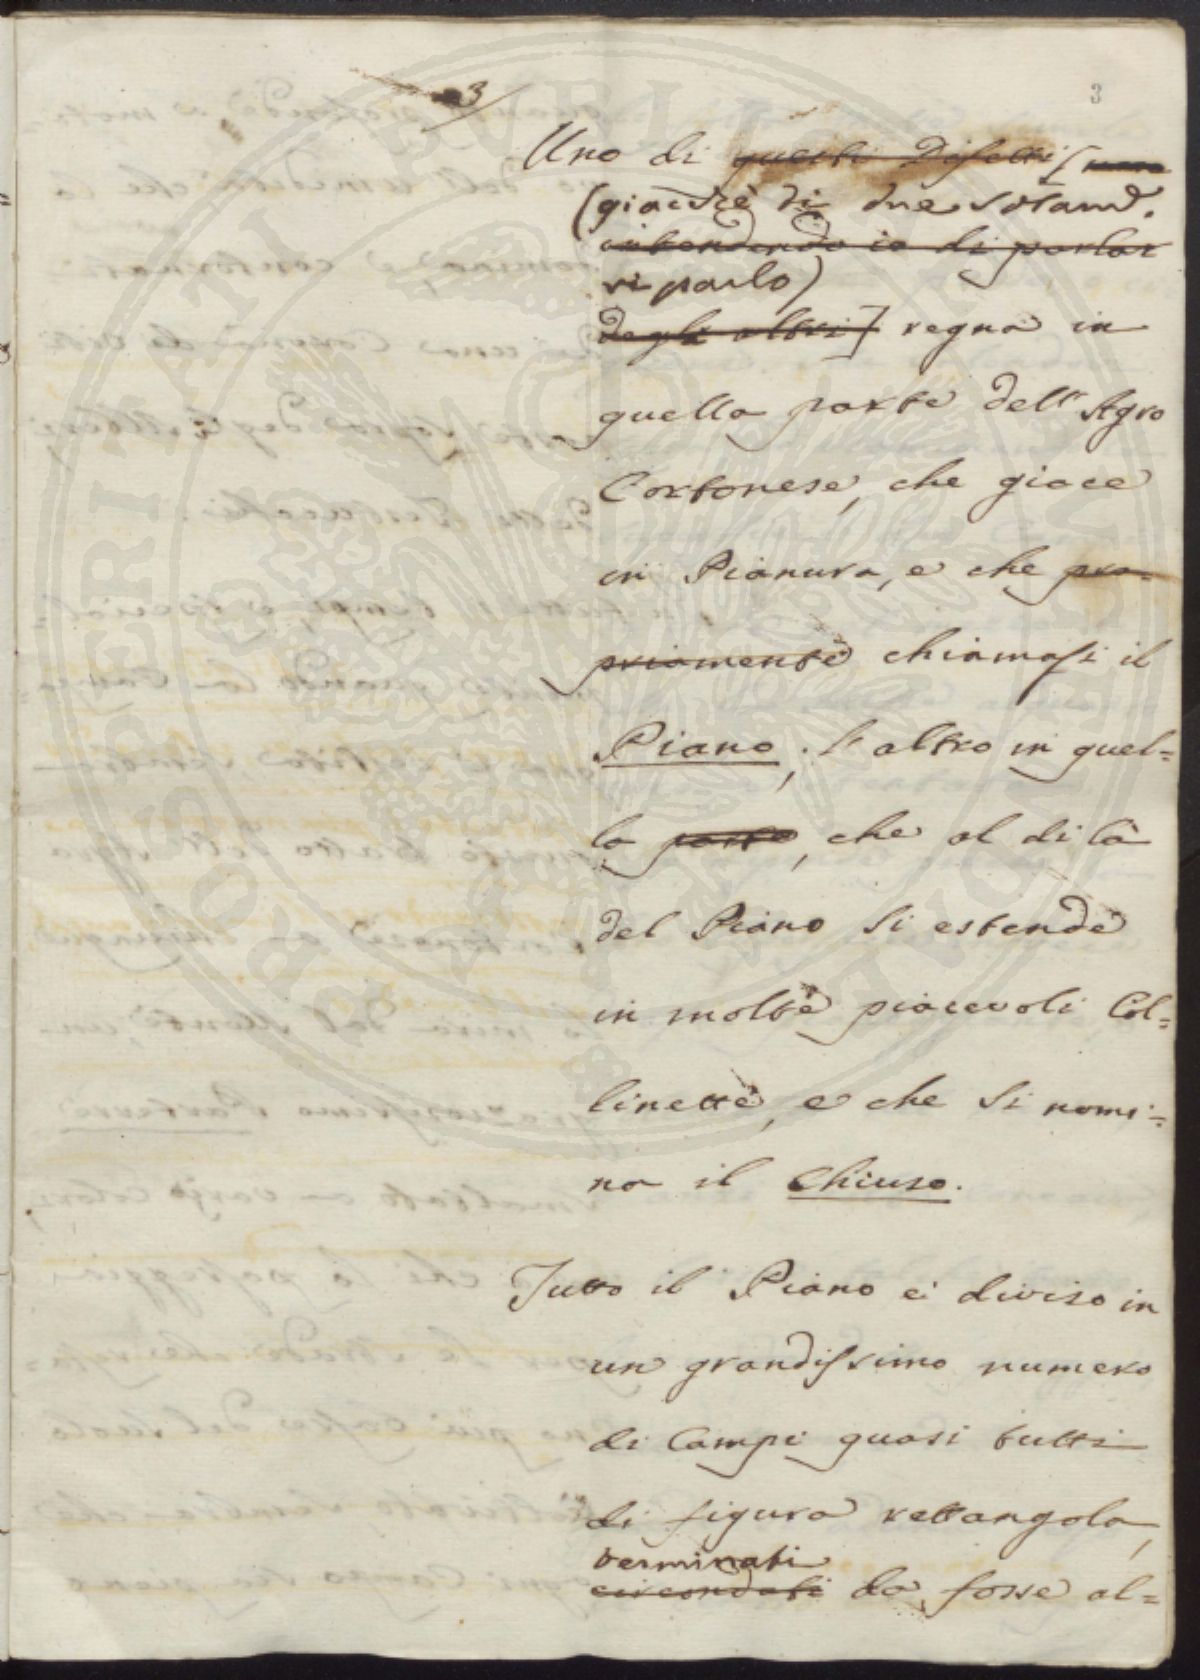 3
3
Uno di questi Difetti (
(giacchè di due solamd.
intendendo io di parlar
vi parlo)
degli altri] regna in
quella parte dell' Agro
Cortonese, che giace
in Pianura, e che pro-
priamente chiamasi il
Piano; l'altro in quel=
la parte, che al di là
del Piano si estende
in molte piacevoli Col=
linette, e che si nomi=
na il Chiuso.
Tutto il Piano è diviso in
un grandissimo numero
di Campi quasi tutti
di figura rettangola,
terminati
circondati da fosse al=
PROSPERITATI PVBLICAE AVGENDAE